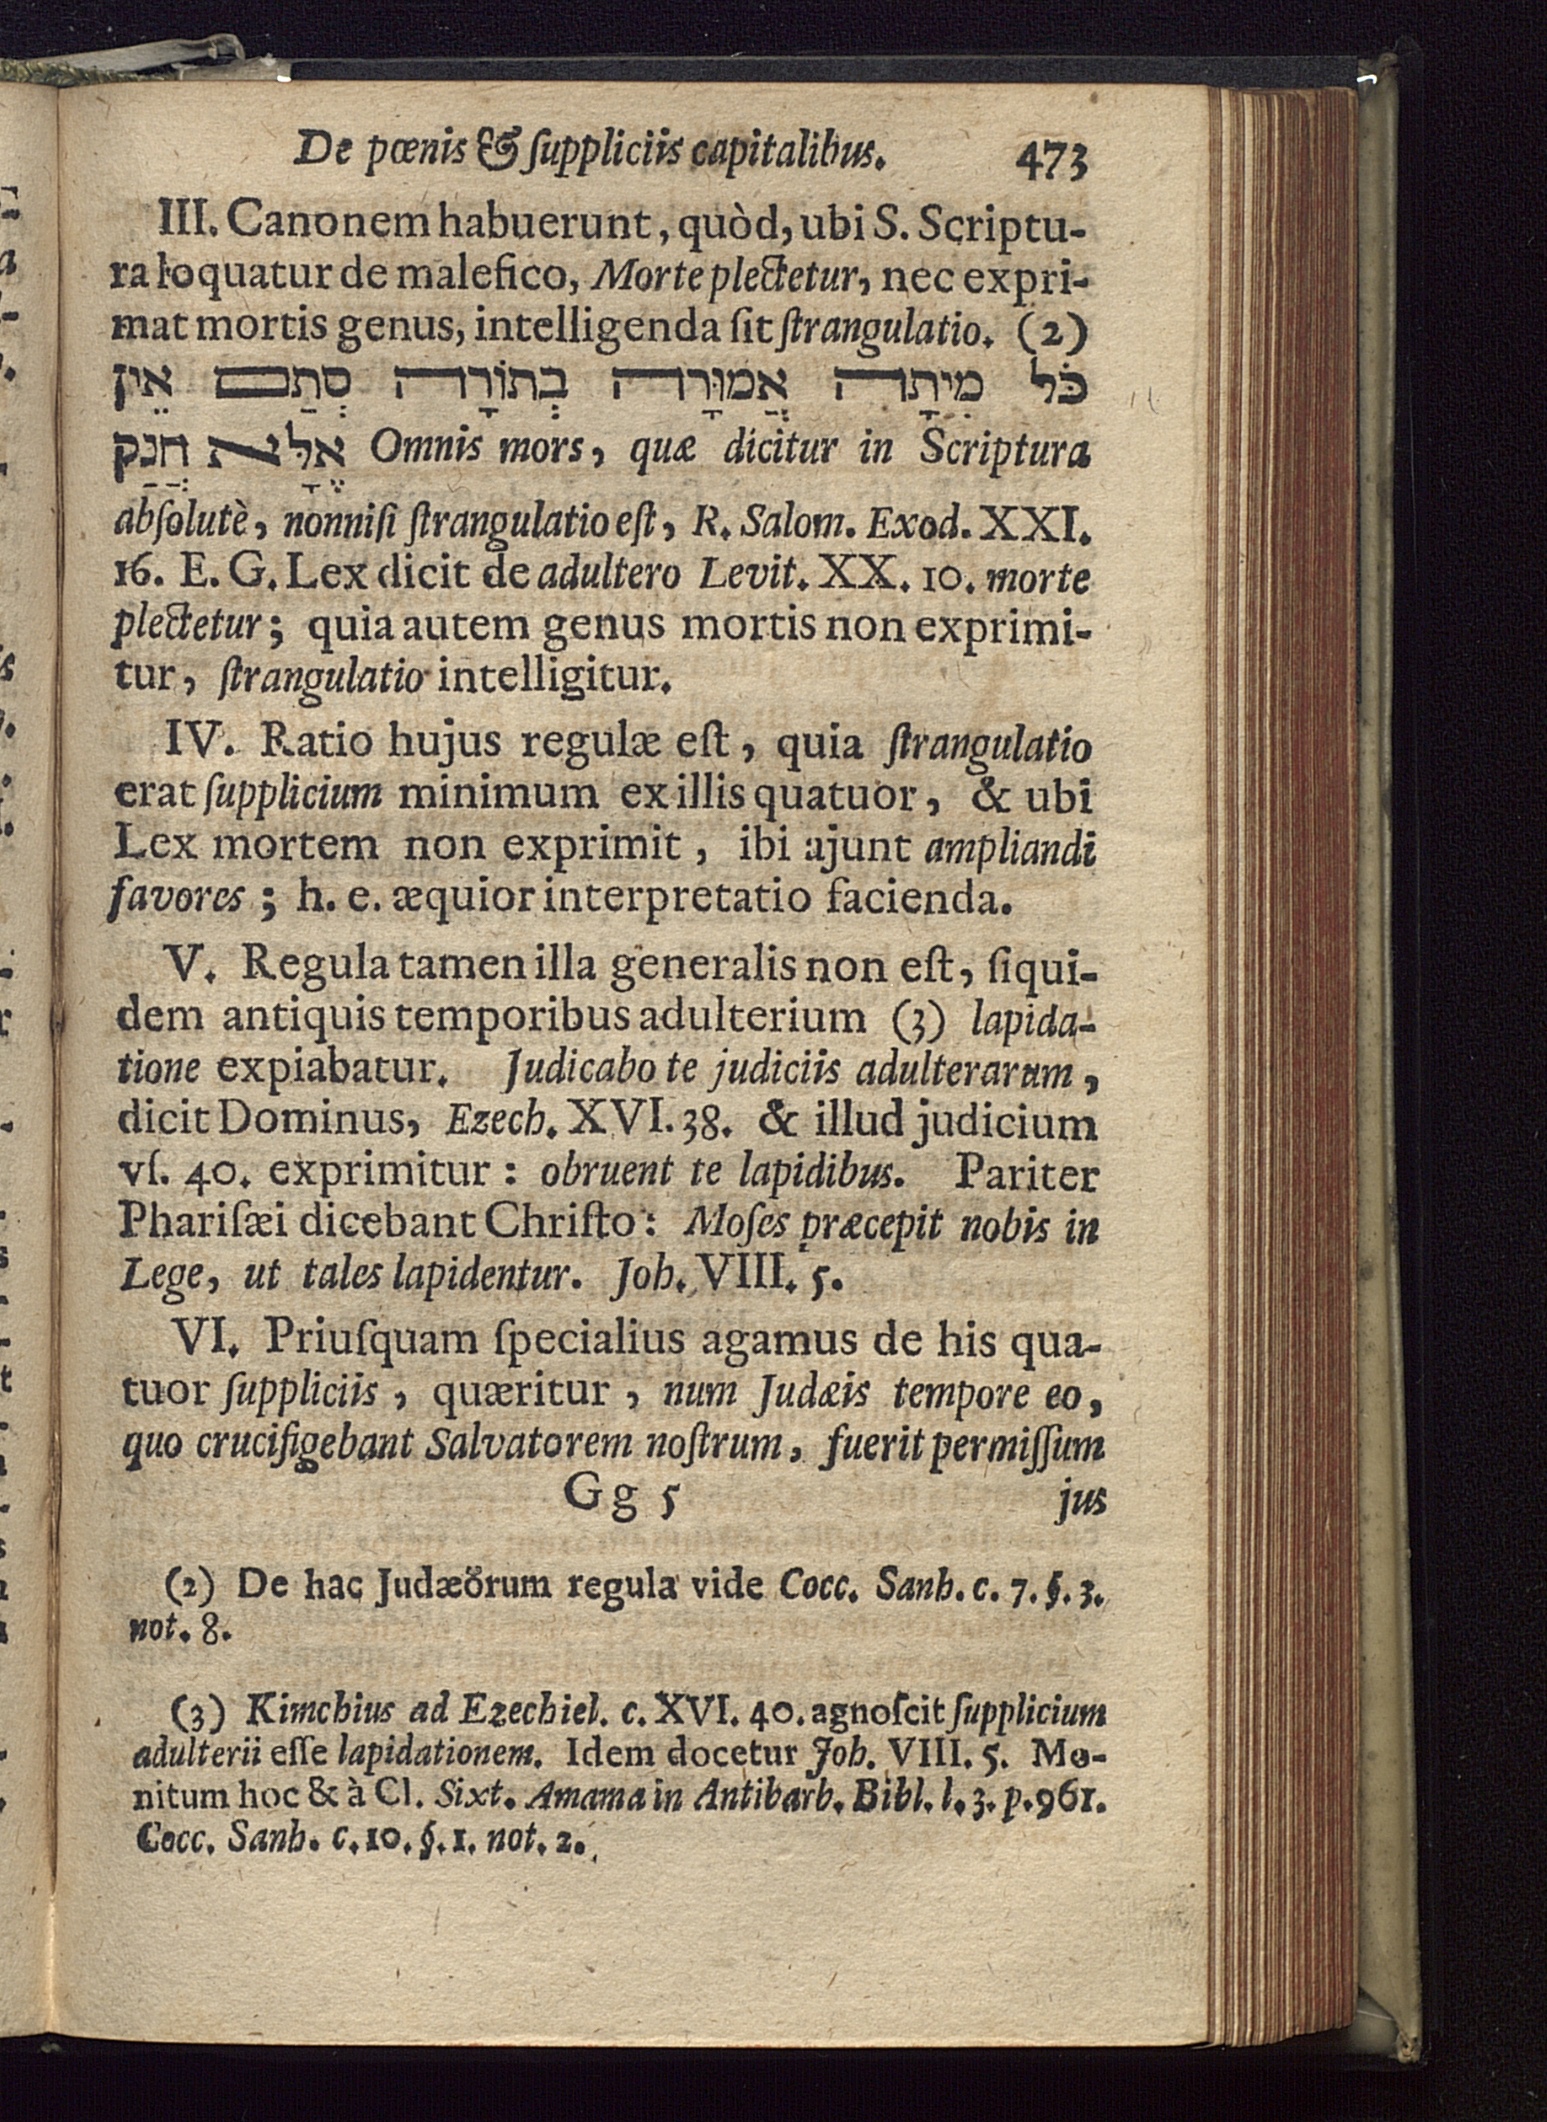 De pœnis & ſuppliciis capitalibus. 473
III. Canonem habuerunt, quòd, ubi S. Scriptu-
ra loquatur de malefico, Morte plectetur, nec expri-
mat mortis genus, intelligenda ſit ſtrangulatio. (2)
כֹּל מִיתָה אֲמוּרָה בְּתוֹרָה סְתַם אֵין
אֶלָּא חֲנַק Omnis mors, quæ dicitur in Scriptura
abſolutè, nonniſi ſtrangulatio eſt, R. Salom. Exod. XXI.
16. E. G. Lex dicit de adultero Levit. XX. 10. morte
plectetur; quia autem genus mortis non exprimi-
tur, ſtrangulatio intelligitur.
IV. Ratio hujus regulæ eſt, quia ſtrangulatio
erat ſupplicium minimum ex illis quatuor, & ubi
Lex mortem non exprimit, ibi ajunt ampliandi
favores; h. e. æquior interpretatio facienda.
V. Regula tamen illa generalis non eſt, ſiqui-
dem antiquis temporibus adulterium (3) lapida-
tione expiabatur. Judicabo te judiciis adulterarum,
dicit Dominus, Ezech. XVI. 38. & illud judicium
vſ. 40. exprimitur: obruent te lapidibus. Pariter
Phariſæi dicebant Chriſto: Moſes præcepit nobis in
Lege, ut tales lapidentur. Joh. VIII. 5.
VI. Priuſquam ſpecialius agamus de his qua-
tuor ſuppliciis, quæritur, num Judæis tempore eo,
quo crucifigebant Salvatorem noſtrum, fuerit permiſſum
Gg 5 jus
(2) De hac Judæörum regula vide Cocc. Sanh. c. 7. §. 3.
not. 8.
(3) Kimchius ad Ezechiel. c. XVI. 40. agnoſcit ſupplicium
adulterii eſſe lapidationem. Idem docetur Joh. VIII. 5. Mo-
nitum hoc & à Cl. Sixt. Amama in Antibarb. Bibl. l. 3. p. 961.
Cocc. Sanh. c. 10. §. 1. not. 2.